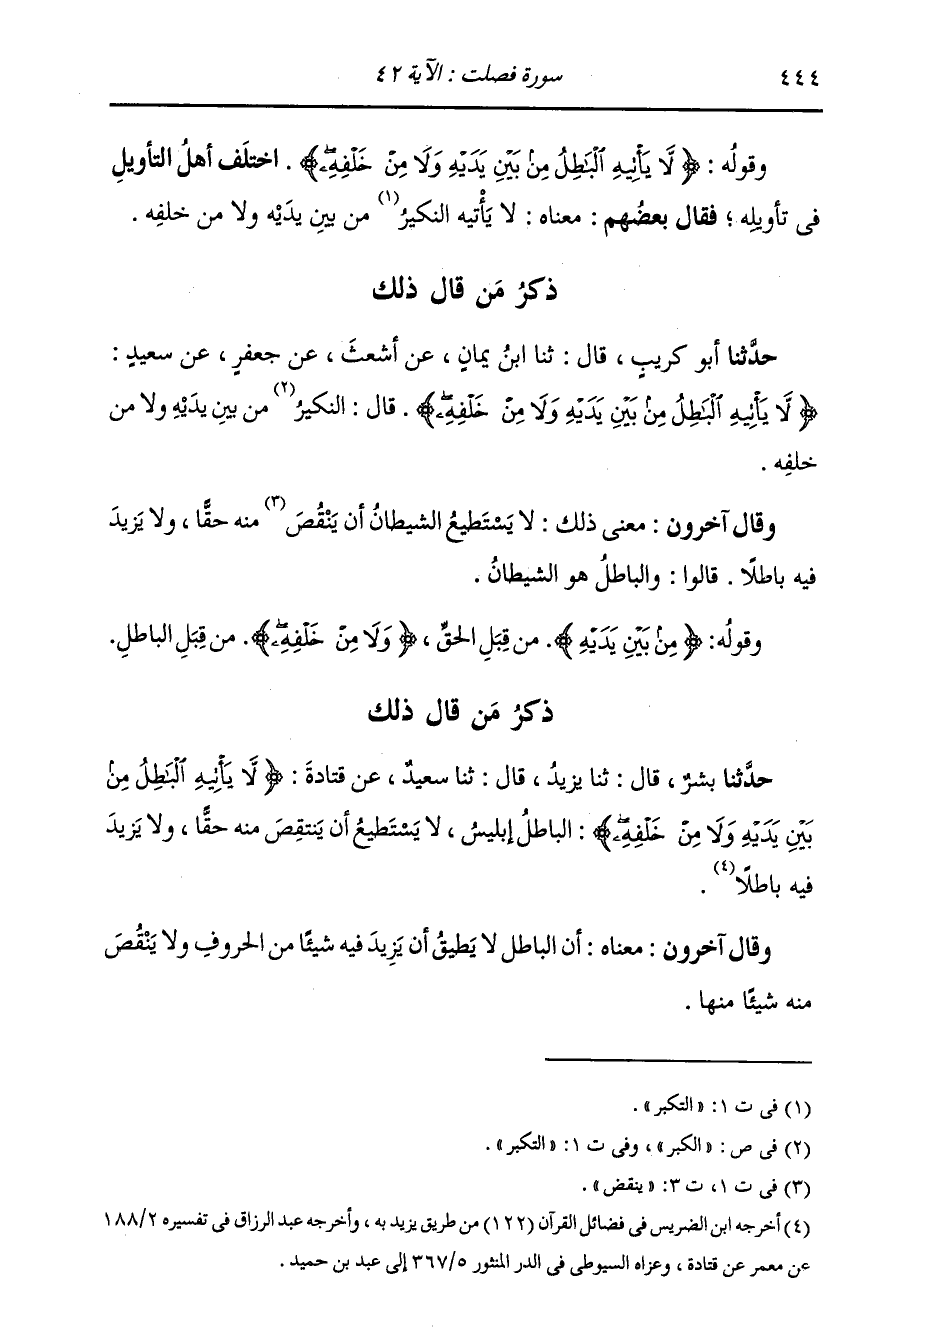 ٤٤٤ سورة فصلت : الآية ٤٢
وقولُه : ﴿ لَّا يَأْتِيهِ الْبَاطِلُ مِنْ بَيْنِ يَدَيْهِ وَلَا مِنْ خَلْفِهِ ﴾ . اختلَف أهلُ التأويلِ
فى تأويلِه ؛ فقال بعضُهم : معناه : لا يَأْتيه النكيرُ (١) من بينِ يدَيْه ولا من خلفِه .
ذكرُ مَن قال ذلك
حدَّثنا أبو كريبٍ ، قال : ثنا ابنُ يمانٍ ، عن أشعثَ ، عن جعفرٍ ، عن سعيدٍ :
﴿ لَّا يَأْتِيهِ الْبَاطِلُ مِنْ بَيْنِ يَدَيْهِ وَلَا مِنْ خَلْفِهِ ﴾ . قال : النكيرُ (٢) من بينِ يدَيْهِ ولا من
خلفِه .
وقال آخرون : معنى ذلك : لا يَسْتَطيعُ الشيطانُ أن يَنْقُصَ (٣) منه حقًّا ، ولا يَزيدَ
فيه باطلًا . قالوا : والباطلُ هو الشيطانُ .
وقولُه: ﴿ مِنْ بَيْنِ يَدَيْهِ ﴾. من قِبَلِ الحقِّ ، ﴿ وَلَا مِنْ خَلْفِهِ ﴾. من قِبَلِ الباطلِ.
ذكرُ مَن قال ذلك
حدَّثنا بشرٌ ، قال : ثنا يزيدُ ، قال : ثنا سعيدٌ ، عن قتادةَ : ﴿ لَّا يَأْتِيهِ الْبَاطِلُ مِنْ
بَيْنِ يَدَيْهِ وَلَا مِنْ خَلْفِهِ ﴾ : الباطلُ إبليسُ ، لا يَسْتَطيعُ أن يَنتقِصَ منه حقًّا ، ولا يَزيدَ
فيه باطلًا (٤) .
وقال آخرون : معناه : أن الباطل لا يَطيقُ أن يَزِيدَ فيه شيئًا من الحروفِ ولا يَنْقُصَ
منه شيئًا منها .
(١) فى ت ١: « التكبر » .
(٢) فى ص : « الكبر » ، وفى ت ١: « التكبر » .
(٣) فى ت ١، ت ٣: « ينقض » .
(٤) أخرجه ابن الضريس فى فضائل القرآن (١٢٢) من طريق يزيد به ، وأخرجه عبد الرزاق فى تفسيره ١٨٨/٢
عن معمر عن قتادة ، وعزاه السيوطى فى الدر المنثور ٣٦٧/٥ إلى عبد بن حميد .